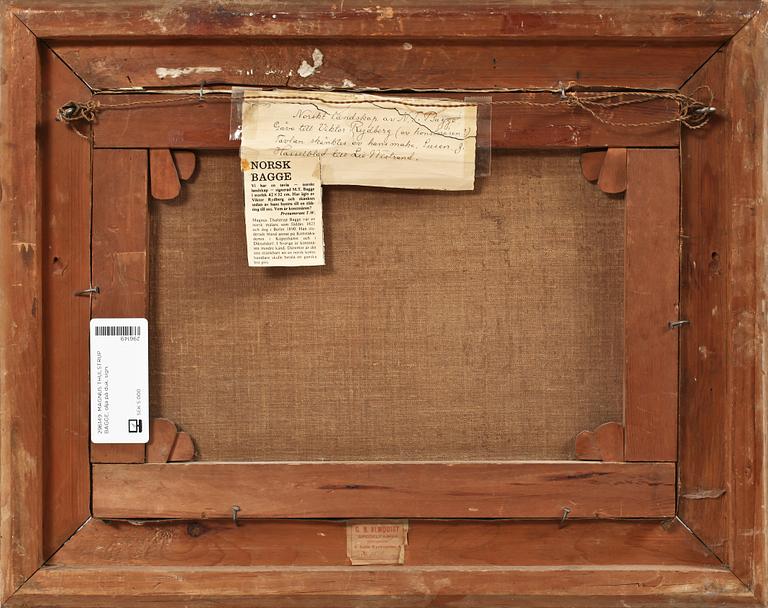 Norskt landskap av M. T. Bagge
Gåva till Viktor Rydberg (av konstnären?)
Tavlan skänktes av hans maka, Susen f.
Hasselblad till
NORSK
BAGGE
Vi har en tavla – norskt
landskap – signerad M.T. Bagge
i storlek 42×32 cm. Har ägts av
Viktor Rydberg och skänkts
sedan av hans hustru till en släk-
ting till oss. Vem är konstnären?
Prenumerant T.W.
Magnus Thulstrup Bagge var en
norsk målare som föddes 1825
och dog i Berlin 1890. Han stu-
derade bland annat på Konstaka-
demien i Köpenhamn och i
Düsseldorf. I Sverige är konstnä-
ren mindre känd.
296149
296149, MAGNUS THULSTRUP
BAGGE, olja på duk, sign.
SEK 5 000
SPEGELFABRIK